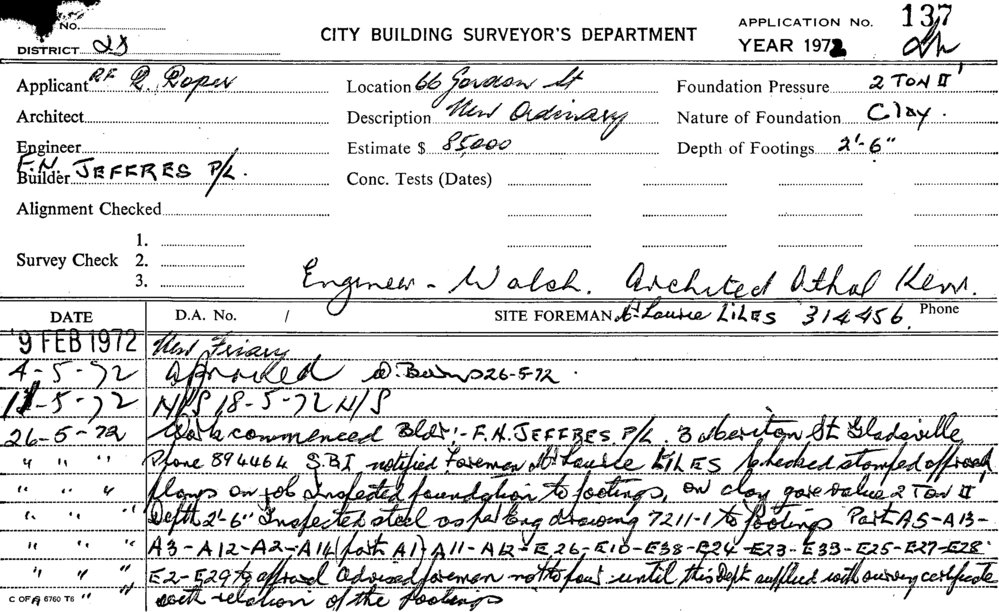 No.
CITY BUILDING SURVEYOR'S DEPARTMENT
APPLICATION No. 137
DISTRICT
YEAR 1972
Applicant R. Roper
Location 66 Gordon St
Foundation Pressure 2 TON
Architect
Description New Ordinary
Nature of Foundation Clay.
Engineer
Estimate $ 85,000
Depth of Footings 2'-6"
Builder F.H. JEFFRES P/L.
Conc. Tests (Dates)
Alignment Checked
1.
Survey Check 2.
3.
Engineer - Walsh. Architect Kerr.
DATE
D.A. No. /
SITE FOREMAN Laurie LILES 314456. Phone
9 FEB 1972 New Friary
4-5-72 approved 26-5-72.
11-5-72 N/S 18-5-72 N/S
26-5-72 Work commenced Bldr:- F.H. JEFFRES P/L. 3 St Gladesville
" " " Phone 894464 S.B.I notified Foreman Laurie LILES checked stamped approved
" " " plans on job Inspected foundation to footings, on clay gave value 2 TON
" " " Depth 2'-6" Inspected steel as per Eng drawing 7211-1 to footings Part A5-A13-
" " " A3-A12-A2-A14 (part A1) A11-A12-E26-E10-E38-E24-E23-E33-E25-E27-E28
" " " E2-E29 to approval Advised foreman not to pour until this Dept supplied with survey certificate
C OF S 6760 T6 " with relation of the footings